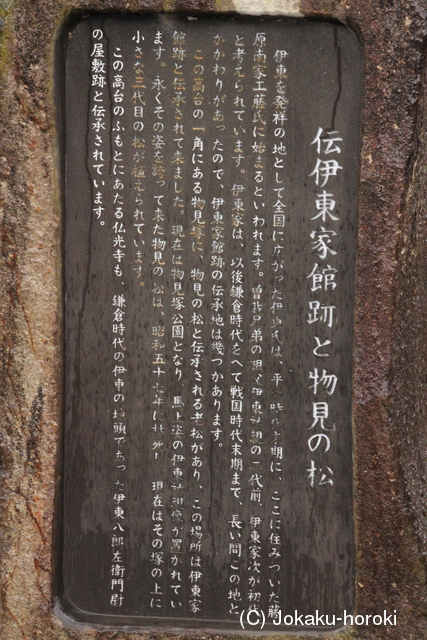 伝伊東家館跡と物見の松
伊東を発祥の地として全国に広がった伊東氏は、平安時代末期に、ここに住みついた藤
原南家工藤氏に始まるといわれます。曽我兄弟の祖父伊東祐親の二代前、伊東家次が初代
と考えられています。伊東家は、以後鎌倉時代をへて戦国時代末期まで、長い間この地と
かかわりがあったので、伊東家館跡の伝承地は幾つかあります。
この高台の一角にある物見塚に、物見の松と伝承される老松があり、この場所は伊東家
館跡と伝承されて来ました。現在は物見塚公園となり、馬上姿の伊東祐親像が置かれてい
ます。永くその姿を誇って来た物見の松は、昭和五十年に枯死し、現在はその塚の上に
小さな三代目の松が植えられています。
この高台のふもとにあたる仏光寺も、鎌倉時代の伊東の地頭であった伊東八郎左衛門尉
の屋敷跡と伝承されています。
(C) Jokaku-horoki